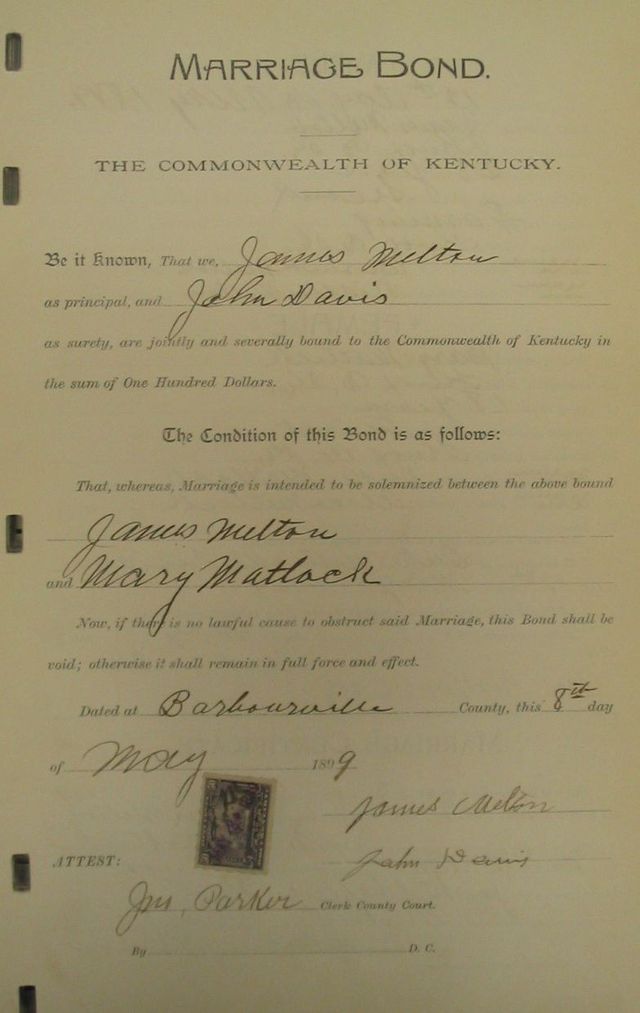 MARRIAGE BOND.
THE COMMONWEALTH OF KENTUCKY.
Be it Known, That we, James Melton
as principal, and John Davis
as surety, are jointly and severally bound to the Commonwealth of Kentucky in
the sum of One Hundred Dollars.
The Condition of this Bond is as follows:
That, whereas, Marriage is intended to be solemnized between the above bound
James Melton
and Mary Matlock
Now, if there is no lawful cause to obstruct said Marriage, this Bond shall be
void; otherwise it shall remain in full force and effect.
Dated at Barbourville County, this 8th day
of May 1899
James Melton
ATTEST: John Davis
Jno, Parker Clerk County Court.
By D. C.